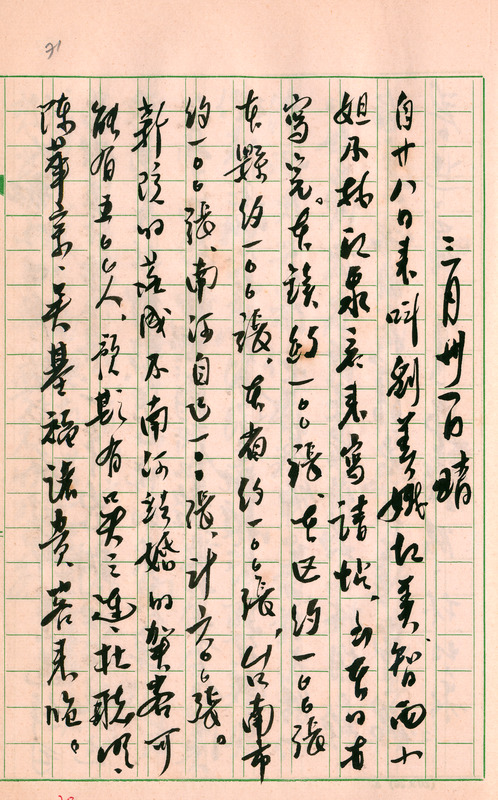 71
三月卅一日 晴
自廿八日來叫劉美娥和美智兩小
姐及林永泉君來寫請帖、至本日才
寫完。本鎮約一〇〇張、本區約一〇〇張
本縣約一〇〇張、本省約一〇〇張、台南市
約一〇〇張、南河自己一〇〇張、計六〇〇張。
新院的落成及南河結婚的賀客可
能有五〇〇人、預期有吳三連、杜聰明、
陳華宗、吳基福諸貴客來臨。